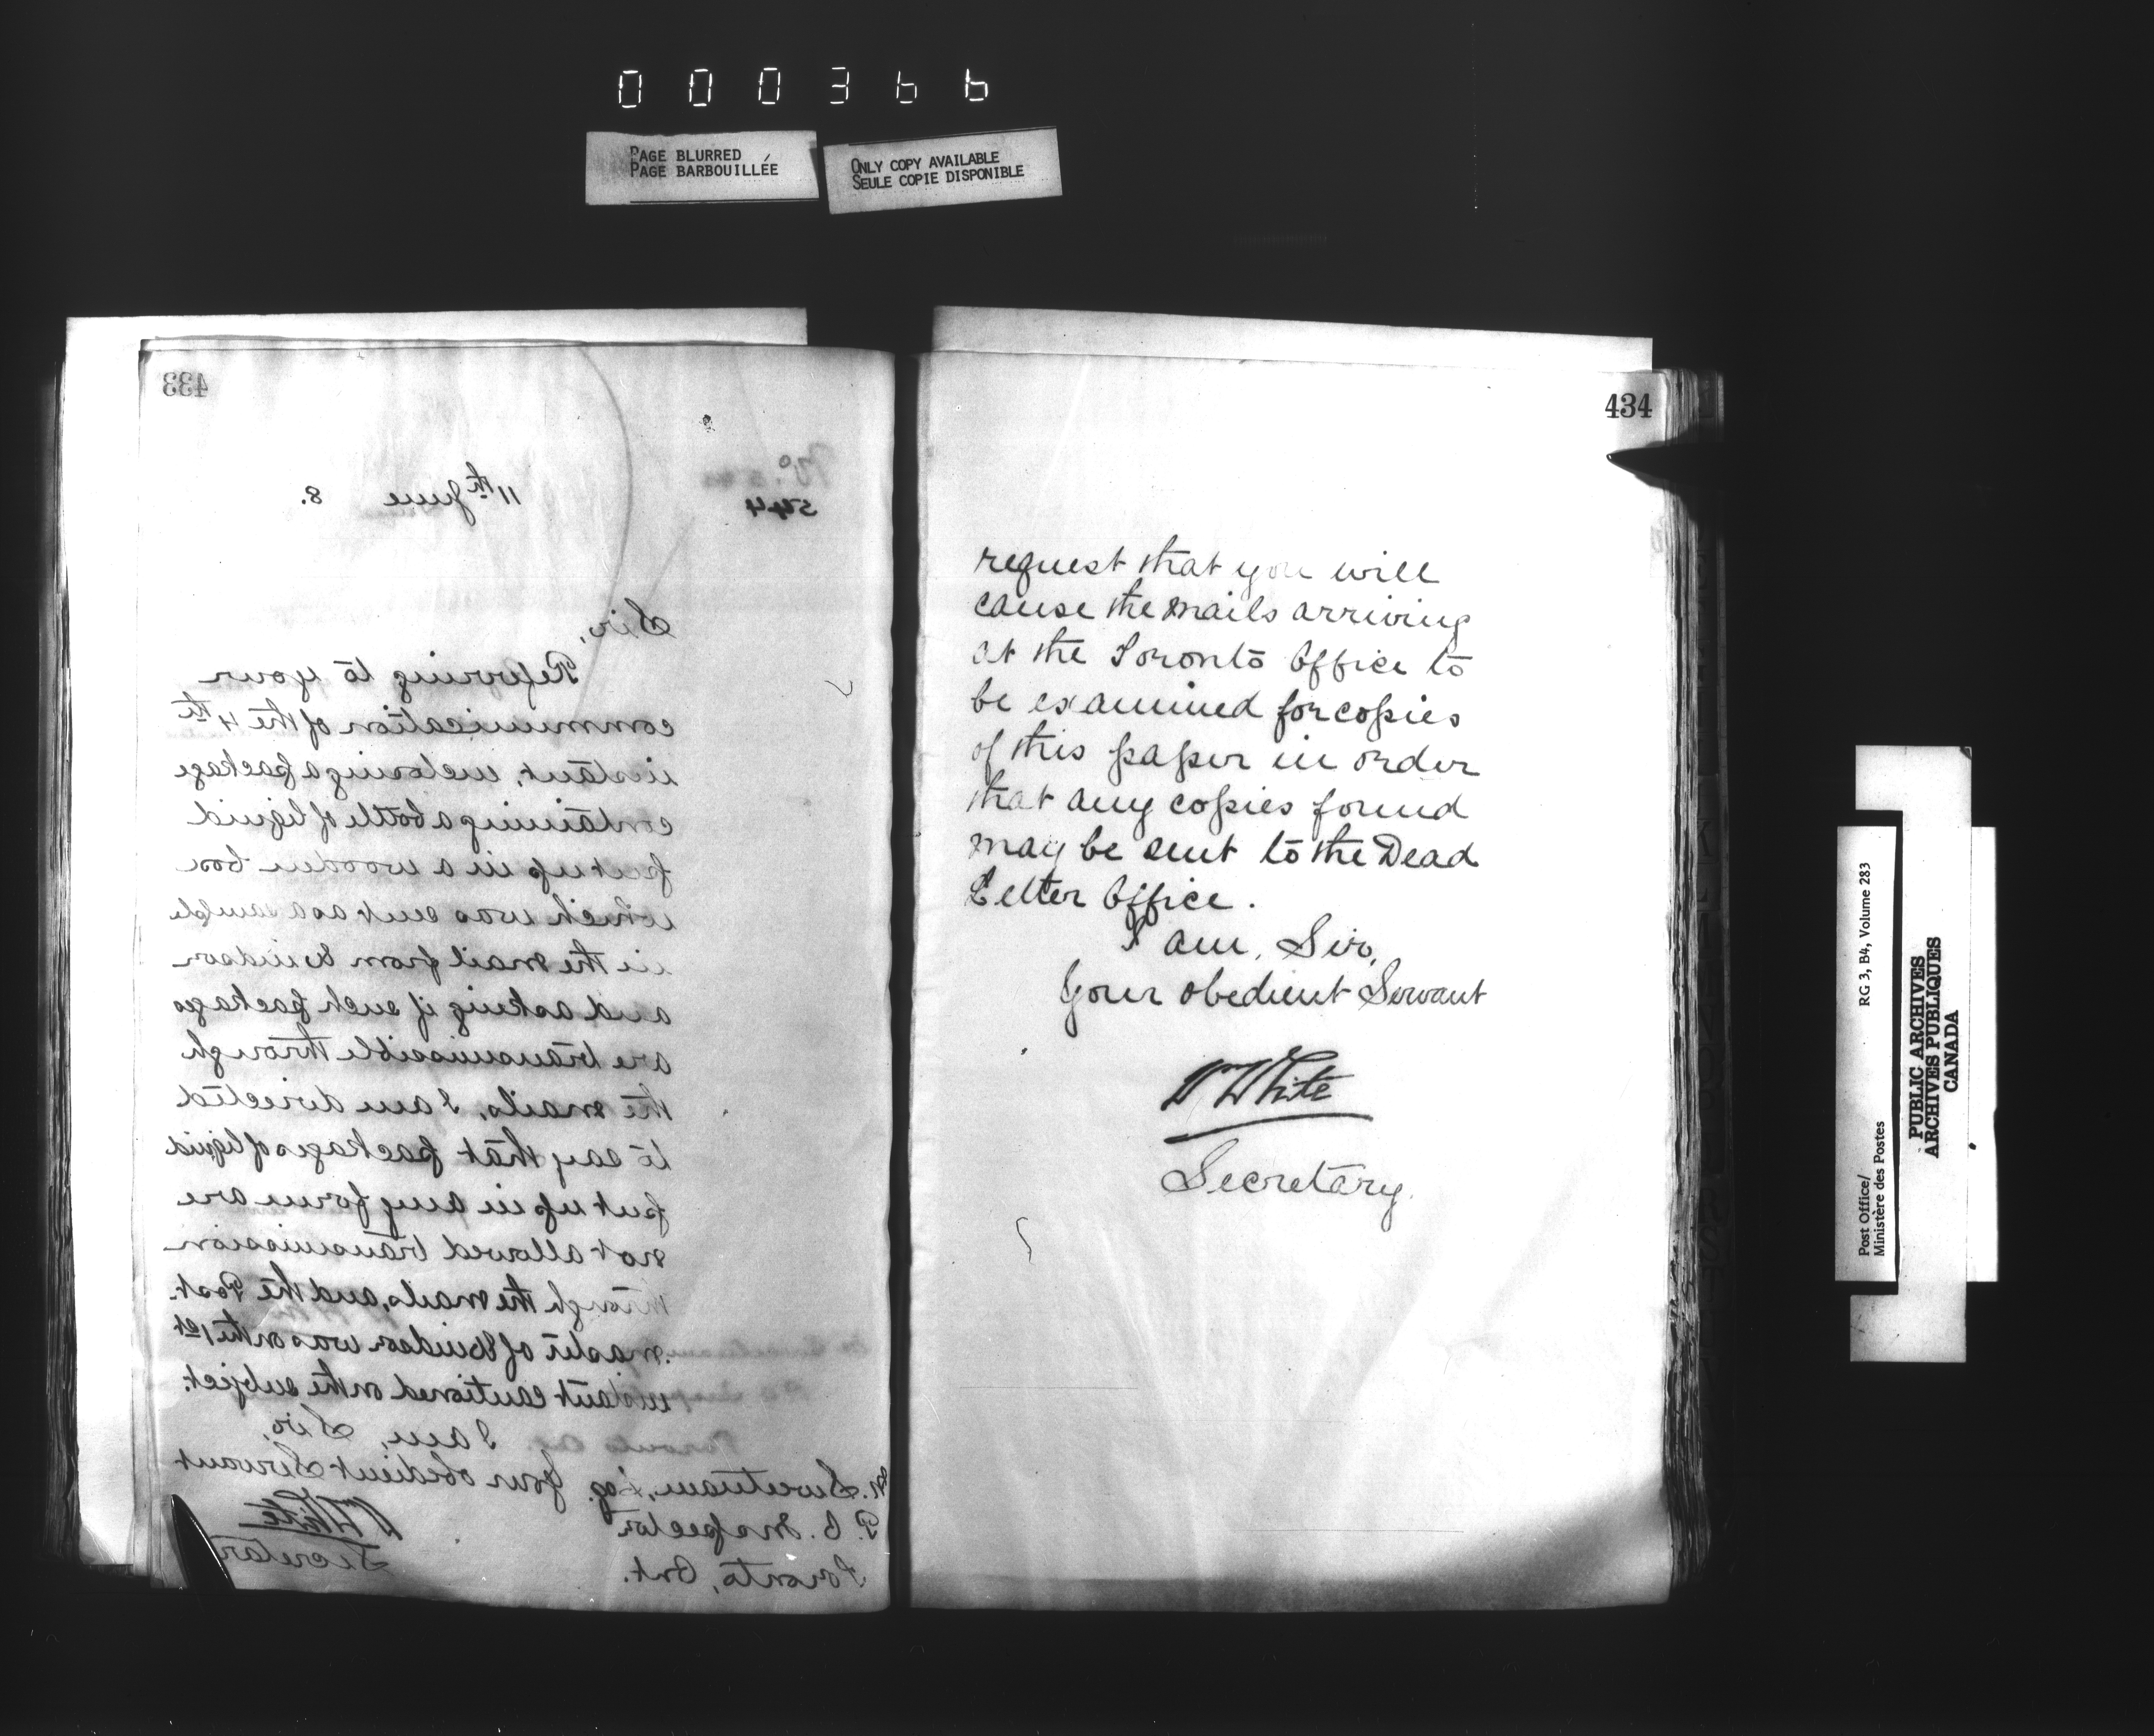 000366
PAGE BLURRED
PAGE BARBOUILLÉE
ONLY COPY AVAILABLE
SEULE COPIE DISPONIBLE
433
No.
544
11th June 8.
Sir,
Referring to your
communication of the 4th
instant, enclosing a package
containing a bottle of liquid
put up in a wooden box
which was sent as a sample
in the mail from Windsor
and asking if such packages
are transmissible through
the mails, I am directed
to say that packages of liquid
put up in any form are
not allowed transmission
through the mails, and the Post-
master of Windsor was on the 1st
instant cautioned on the subject.
I am, Sir,
Your obedient Servant
Wm White
Secretary
M. Sweetnam, Esq.
P. O. Inspector
Toronto, Ont.
434
request that you will
cause the mails arriving
at the Toronto Office to
be examined for copies
of this paper in order
that any copies found
may be sent to the Dead
Letter Office.
I am, Sir,
Your obedient Servant
Wm White
Secretary.
Post Office/
Ministère des Postes
RG 3, B4, Volume 283
PUBLIC ARCHIVES
ARCHIVES PUBLIQUES
CANADA